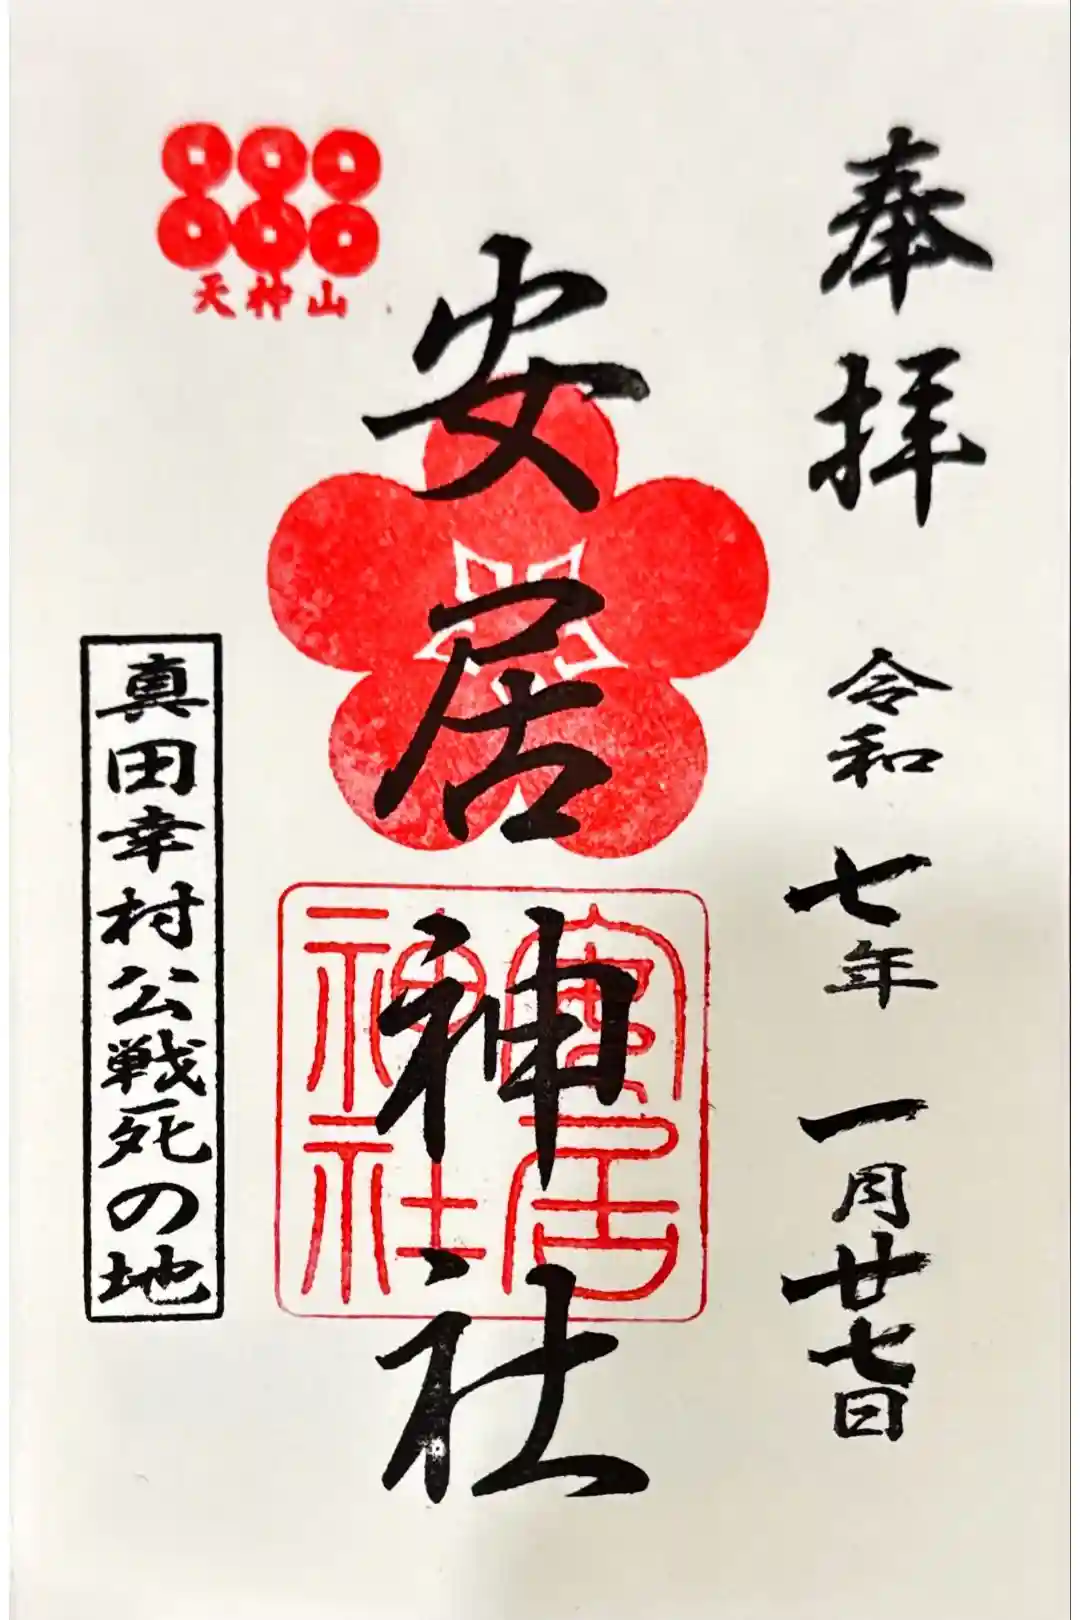 奉拝
令和七年一月廿七日
安居神社
安居
神社
天神山
真田幸村公戦死の地